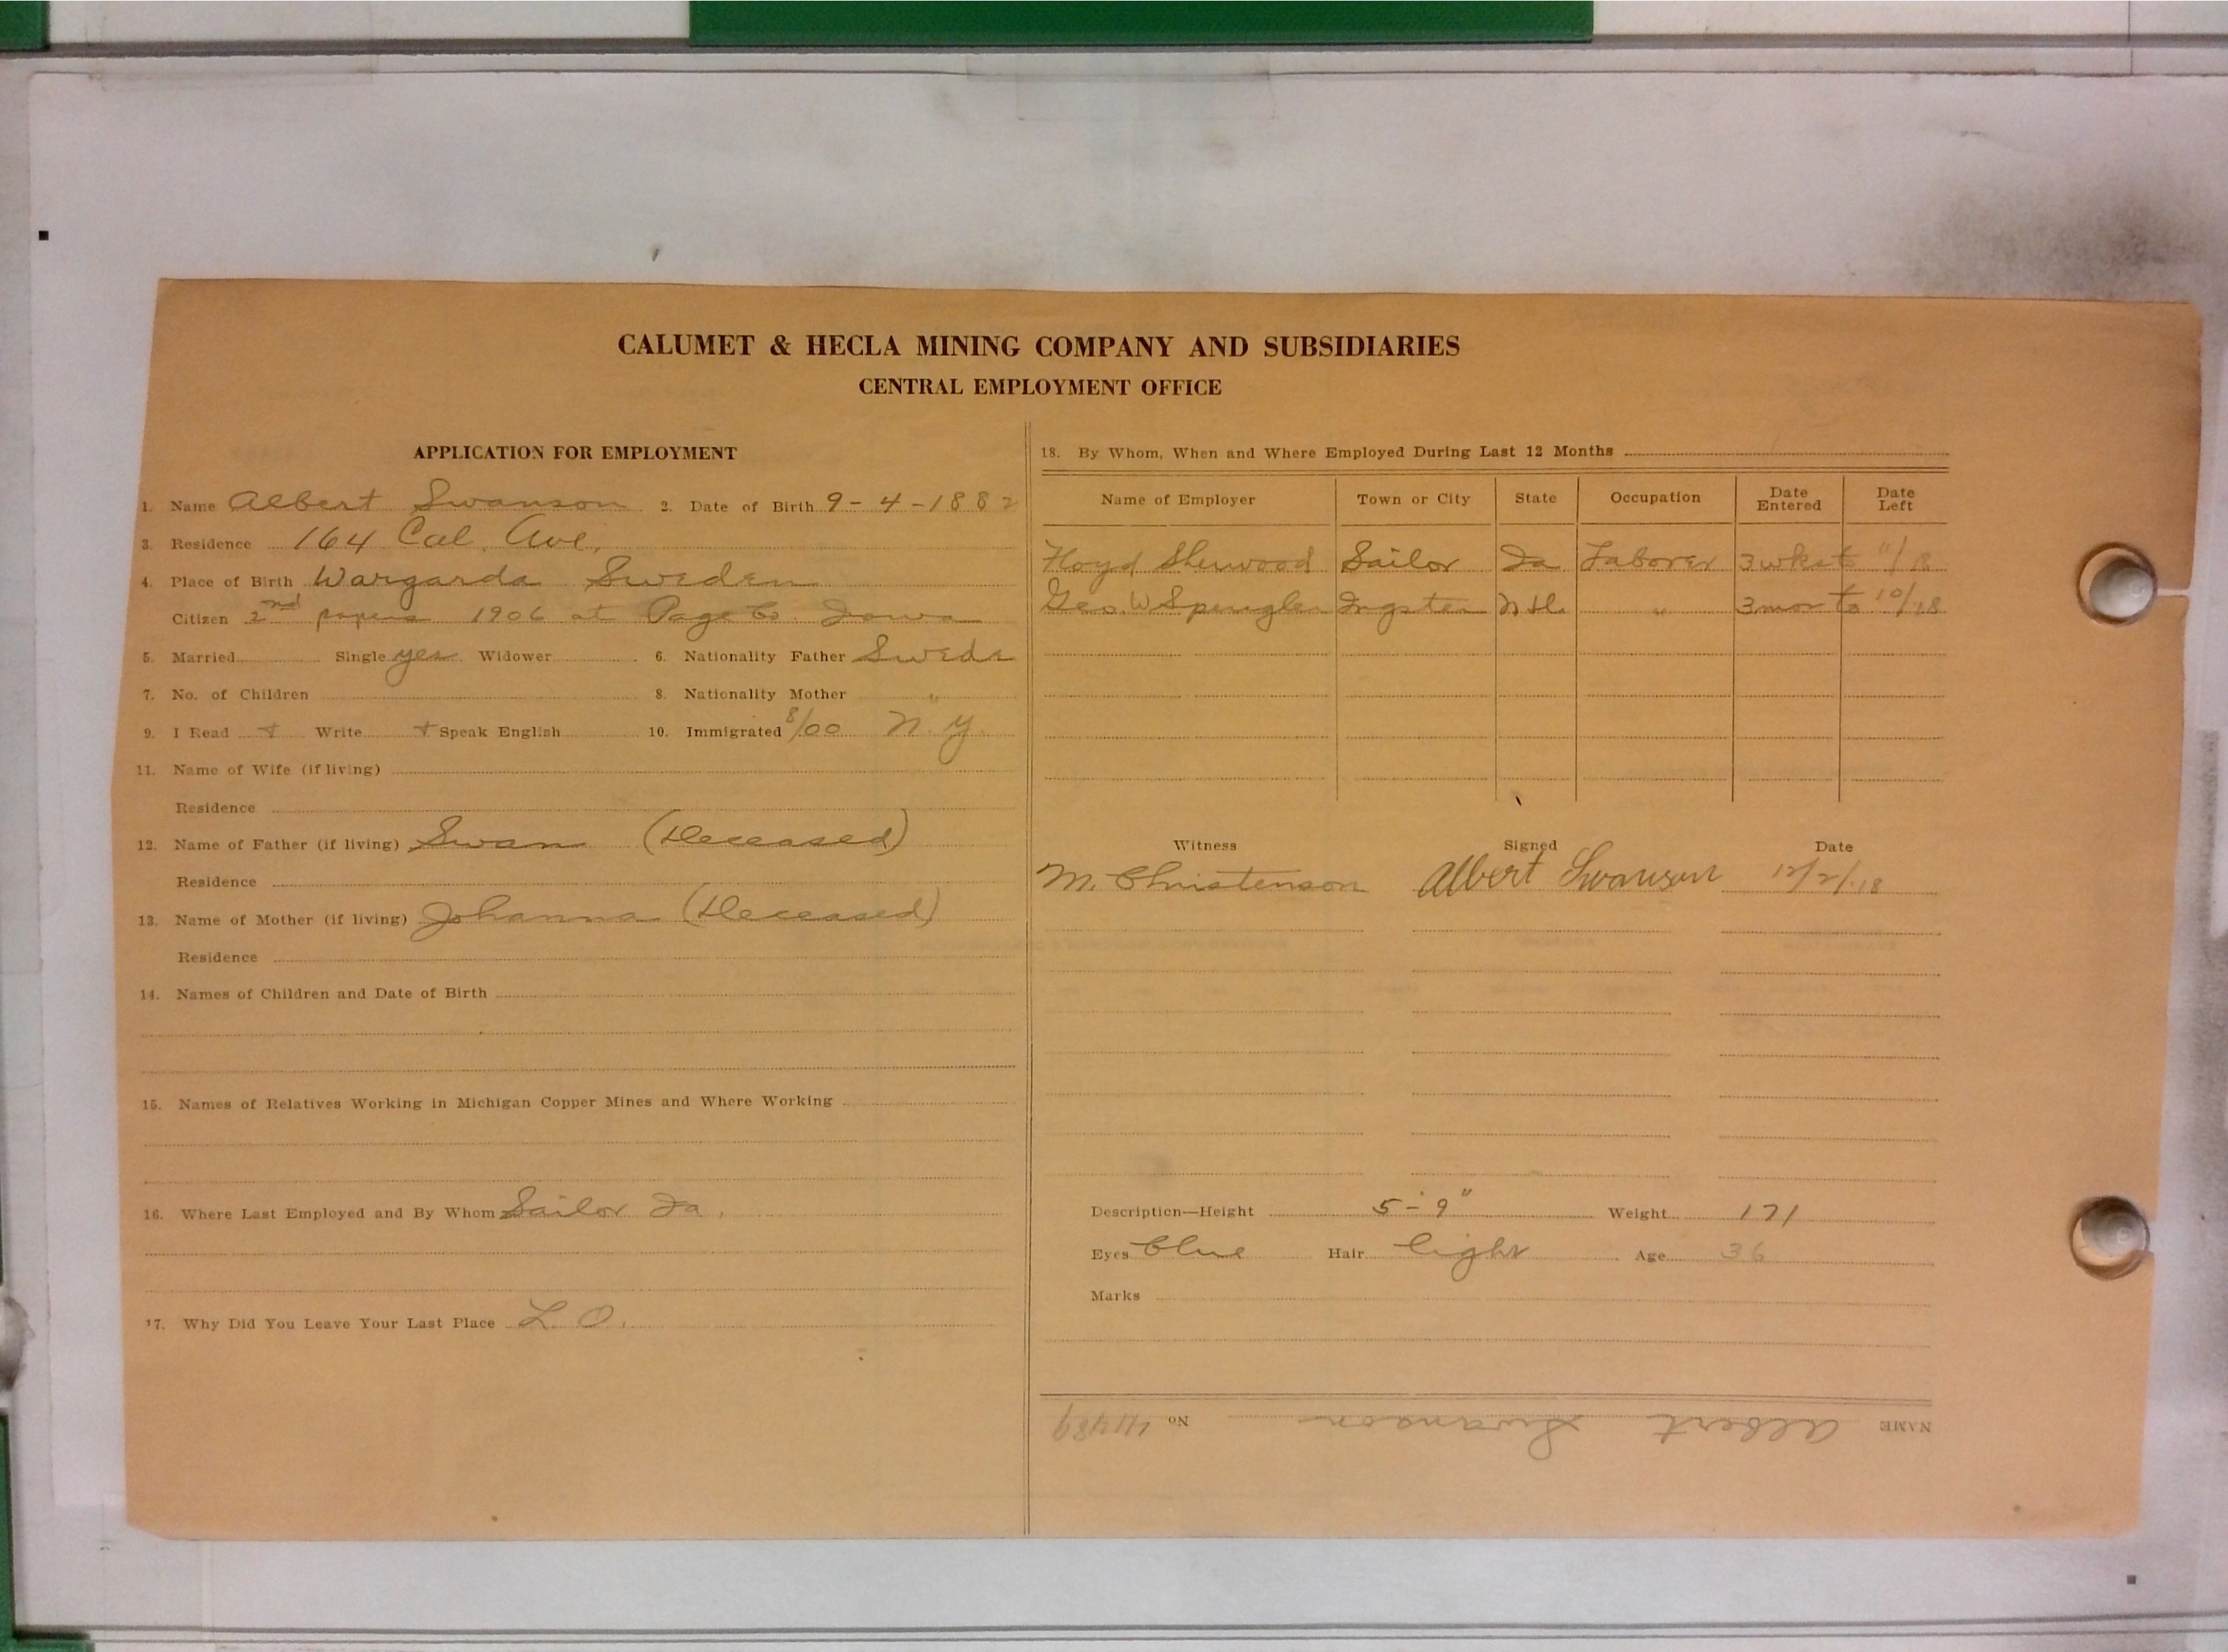 CALUMET & HECLA MINING COMPANY AND SUBSIDIARIES
CENTRAL EMPLOYMENT OFFICE
APPLICATION FOR EMPLOYMENT
1. Name Albert Swanson 2. Date of Birth 9-4-1882
3. Residence 164 Cal. Ave.
4. Place of Birth Wargarda Sweden
Citizen 2nd papers 1906 at Page Co. Iowa
5. Married Single yes Widower 6. Nationality Father Swede
7. No. of Children 8. Nationality Mother "
9. I Read + Write + Speak English 10. Immigrated 8/00 N.Y.
11. Name of Wife (if living)
Residence
12. Name of Father (if living) Swan (Deceased)
Residence
13. Name of Mother (if living) Johanna (Deceased)
Residence
14. Names of Children and Date of Birth
15. Names of Relatives Working in Michigan Copper Mines and Where Working
16. Where Last Employed and By Whom Sailor Ia.
17. Why Did You Leave Your Last Place L. O.
18. By Whom, When and Where Employed During Last 12 Months
Name of Employer Town or City State Occupation Date Entered Date Left
Floyd Sherwood Sailor Ia Laborer 3 wks to 11/18
Geo. W Spengler " 3 mos to 10/18
Witness Signed Date
M. Christenson Albert Swanson 12/2/18
Description—Height 5-9" Weight 171
Eyes blue Hair light Age 36
Marks
NAME Albert Swanson No